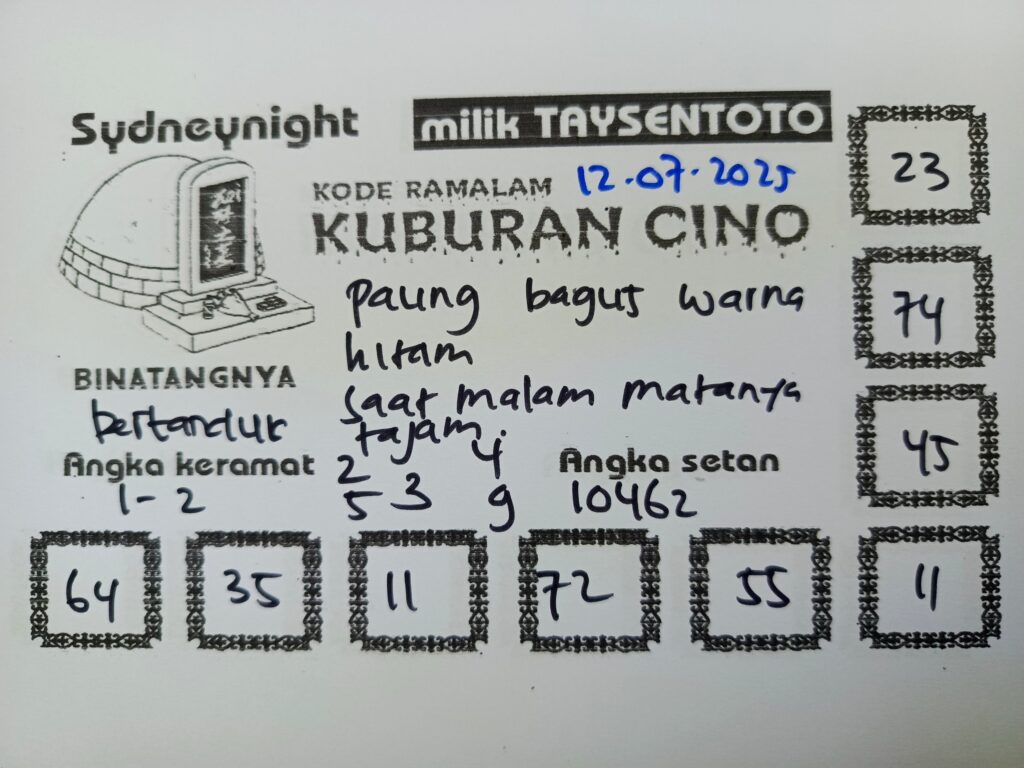 Sydneynight
milik TAYSENTOTO
KODE RAMALAM 12.07.2025
KUBURAN CINO
paung bagus warna
hitam
saat malam matanya
tajam.
BINATANGNYA
bertanduk
Angka keramat
1-2
2 4
5 3 9
Angka setan
10462
23
74
45
64 35 11 72 55 11